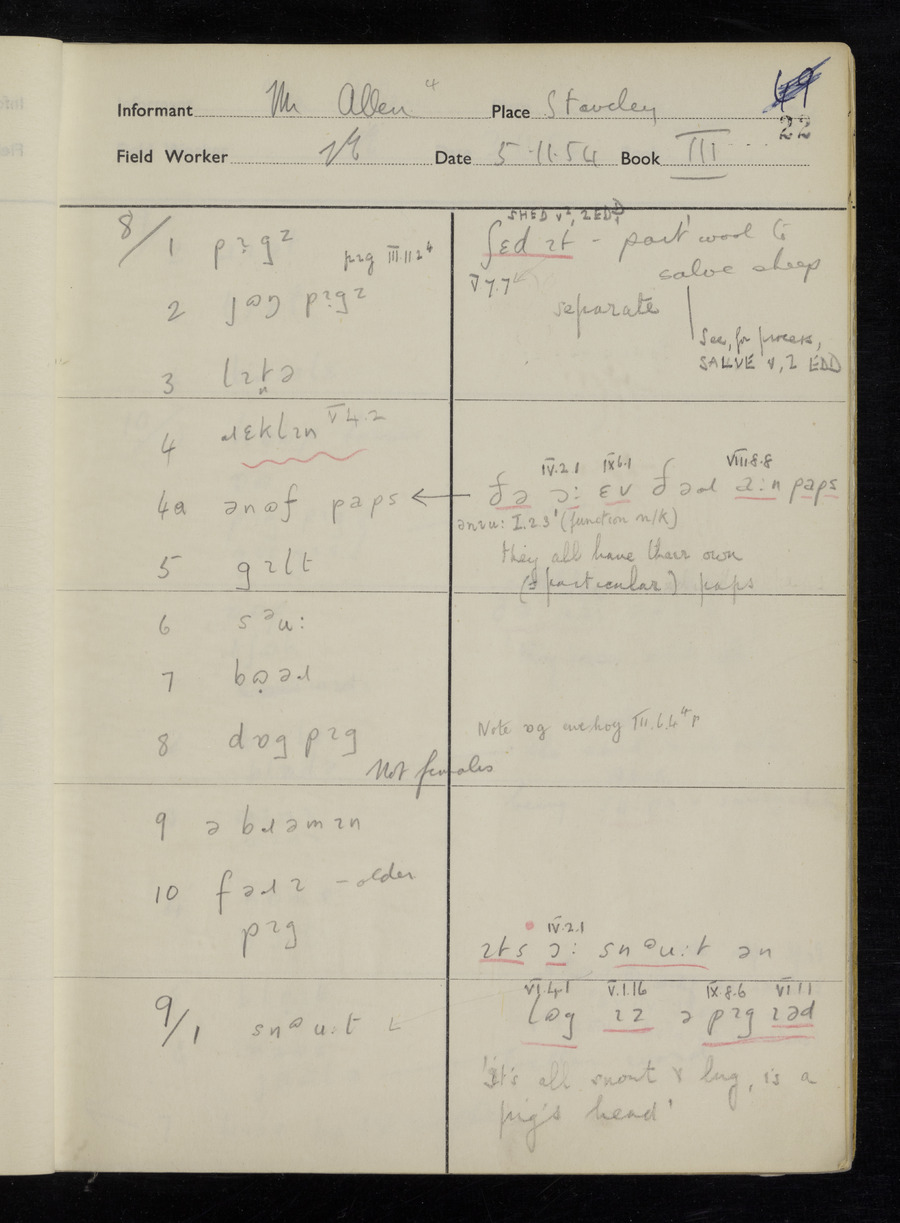 Informant Mr Allen 4 Place Staveley 49
22
Field Worker Date 5·11·54 Book III
8/1 pɪgz
pɪg III.11.2
2 jɷŋ pɪgz
3 lɪtə
4 ɹɛklɪn V 4.2
4a ənɷf paps ←
5 gɪlt
6 sᵊu:
7 bɷəɹ
8 dɒg pɪg
Not females
9 ə bɹəmɪn
10 fəɹɪ – older
pɪg
9/1 snᶷu:t
SHED v², 2 EDD
ʃɛd ɪt – part wool to
salve sheep
V 7.7
separate
See, for process,
SALVE v, 2 EDD
IV.2.1 IX.6.1 VIII.8.8
ðə ɔ: ɛv ðəɹ a:n paps
ənɪu: I.2.3 (function n/k)
they all have their own
(& particular) paps
Note ɒg III.6.4
IV.2.1
ɪts ɔ: snᶷu:t ən
VI.4.1 V.1.16 IX.8.6 VI.1.1
lɷg ɪz ə pɪg ɪəd
'It's all snout & lug, is a
pig's head'